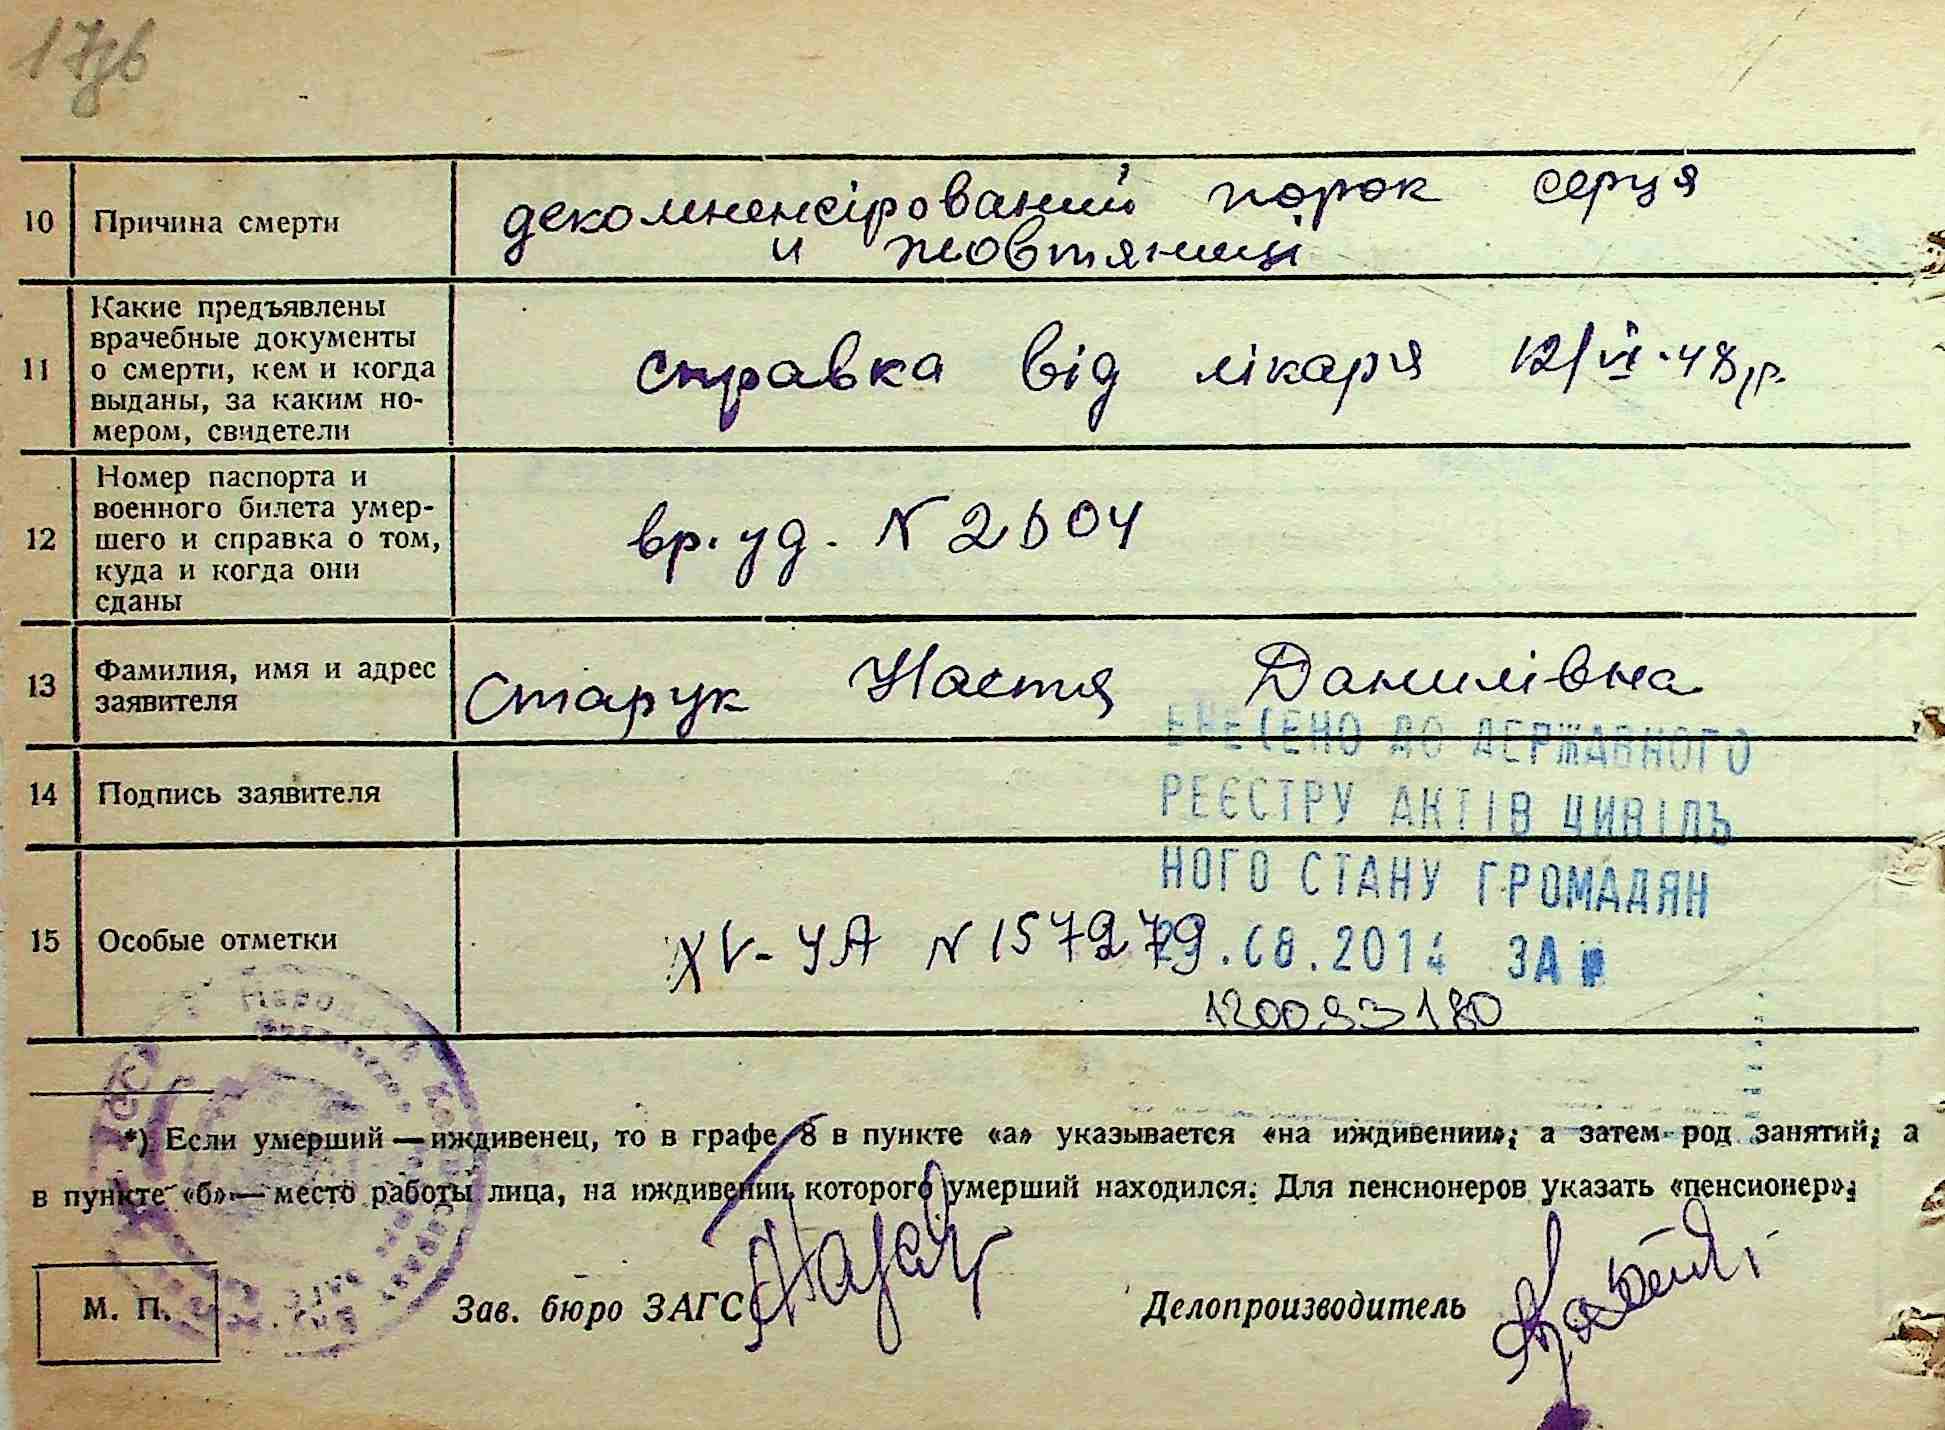 10 Причина смерти декомпенсірований порок серця
и жовтяниці
11 Какие предъявлены
врачебные документы
о смерти, кем и когда
выданы, за каким но-
мером, свидетели
справка від лікаря 12/VI-48 р.
12 Номер паспорта и
военного билета умер-
шего и справка о том,
куда и когда они
сданы
вр. уд. N 2504
13 Фамилия, имя и адрес
заявителя
Старук Настя Данилівна
ВНЕСЕНО ДО ДЕРЖАВНОГО
14 Подпись заявителя
РЕЄСТРУ АКТІВ ЦИВІЛЬ
НОГО СТАНУ ГРОМАДЯН
15 Особые отметки
XV-УА N 157279
.08.2014 ЗА №
120093180
*) Если умерший — иждивенец, то в графе 8 в пункте «а» указывается «на иждивении»; а затем род занятий; а
в пункте «б» — место работы лица, на иждивении которого умерший находился. Для пенсионеров указать «пенсионер»;
М. П. Зав. бюро ЗАГС Делопроизводитель